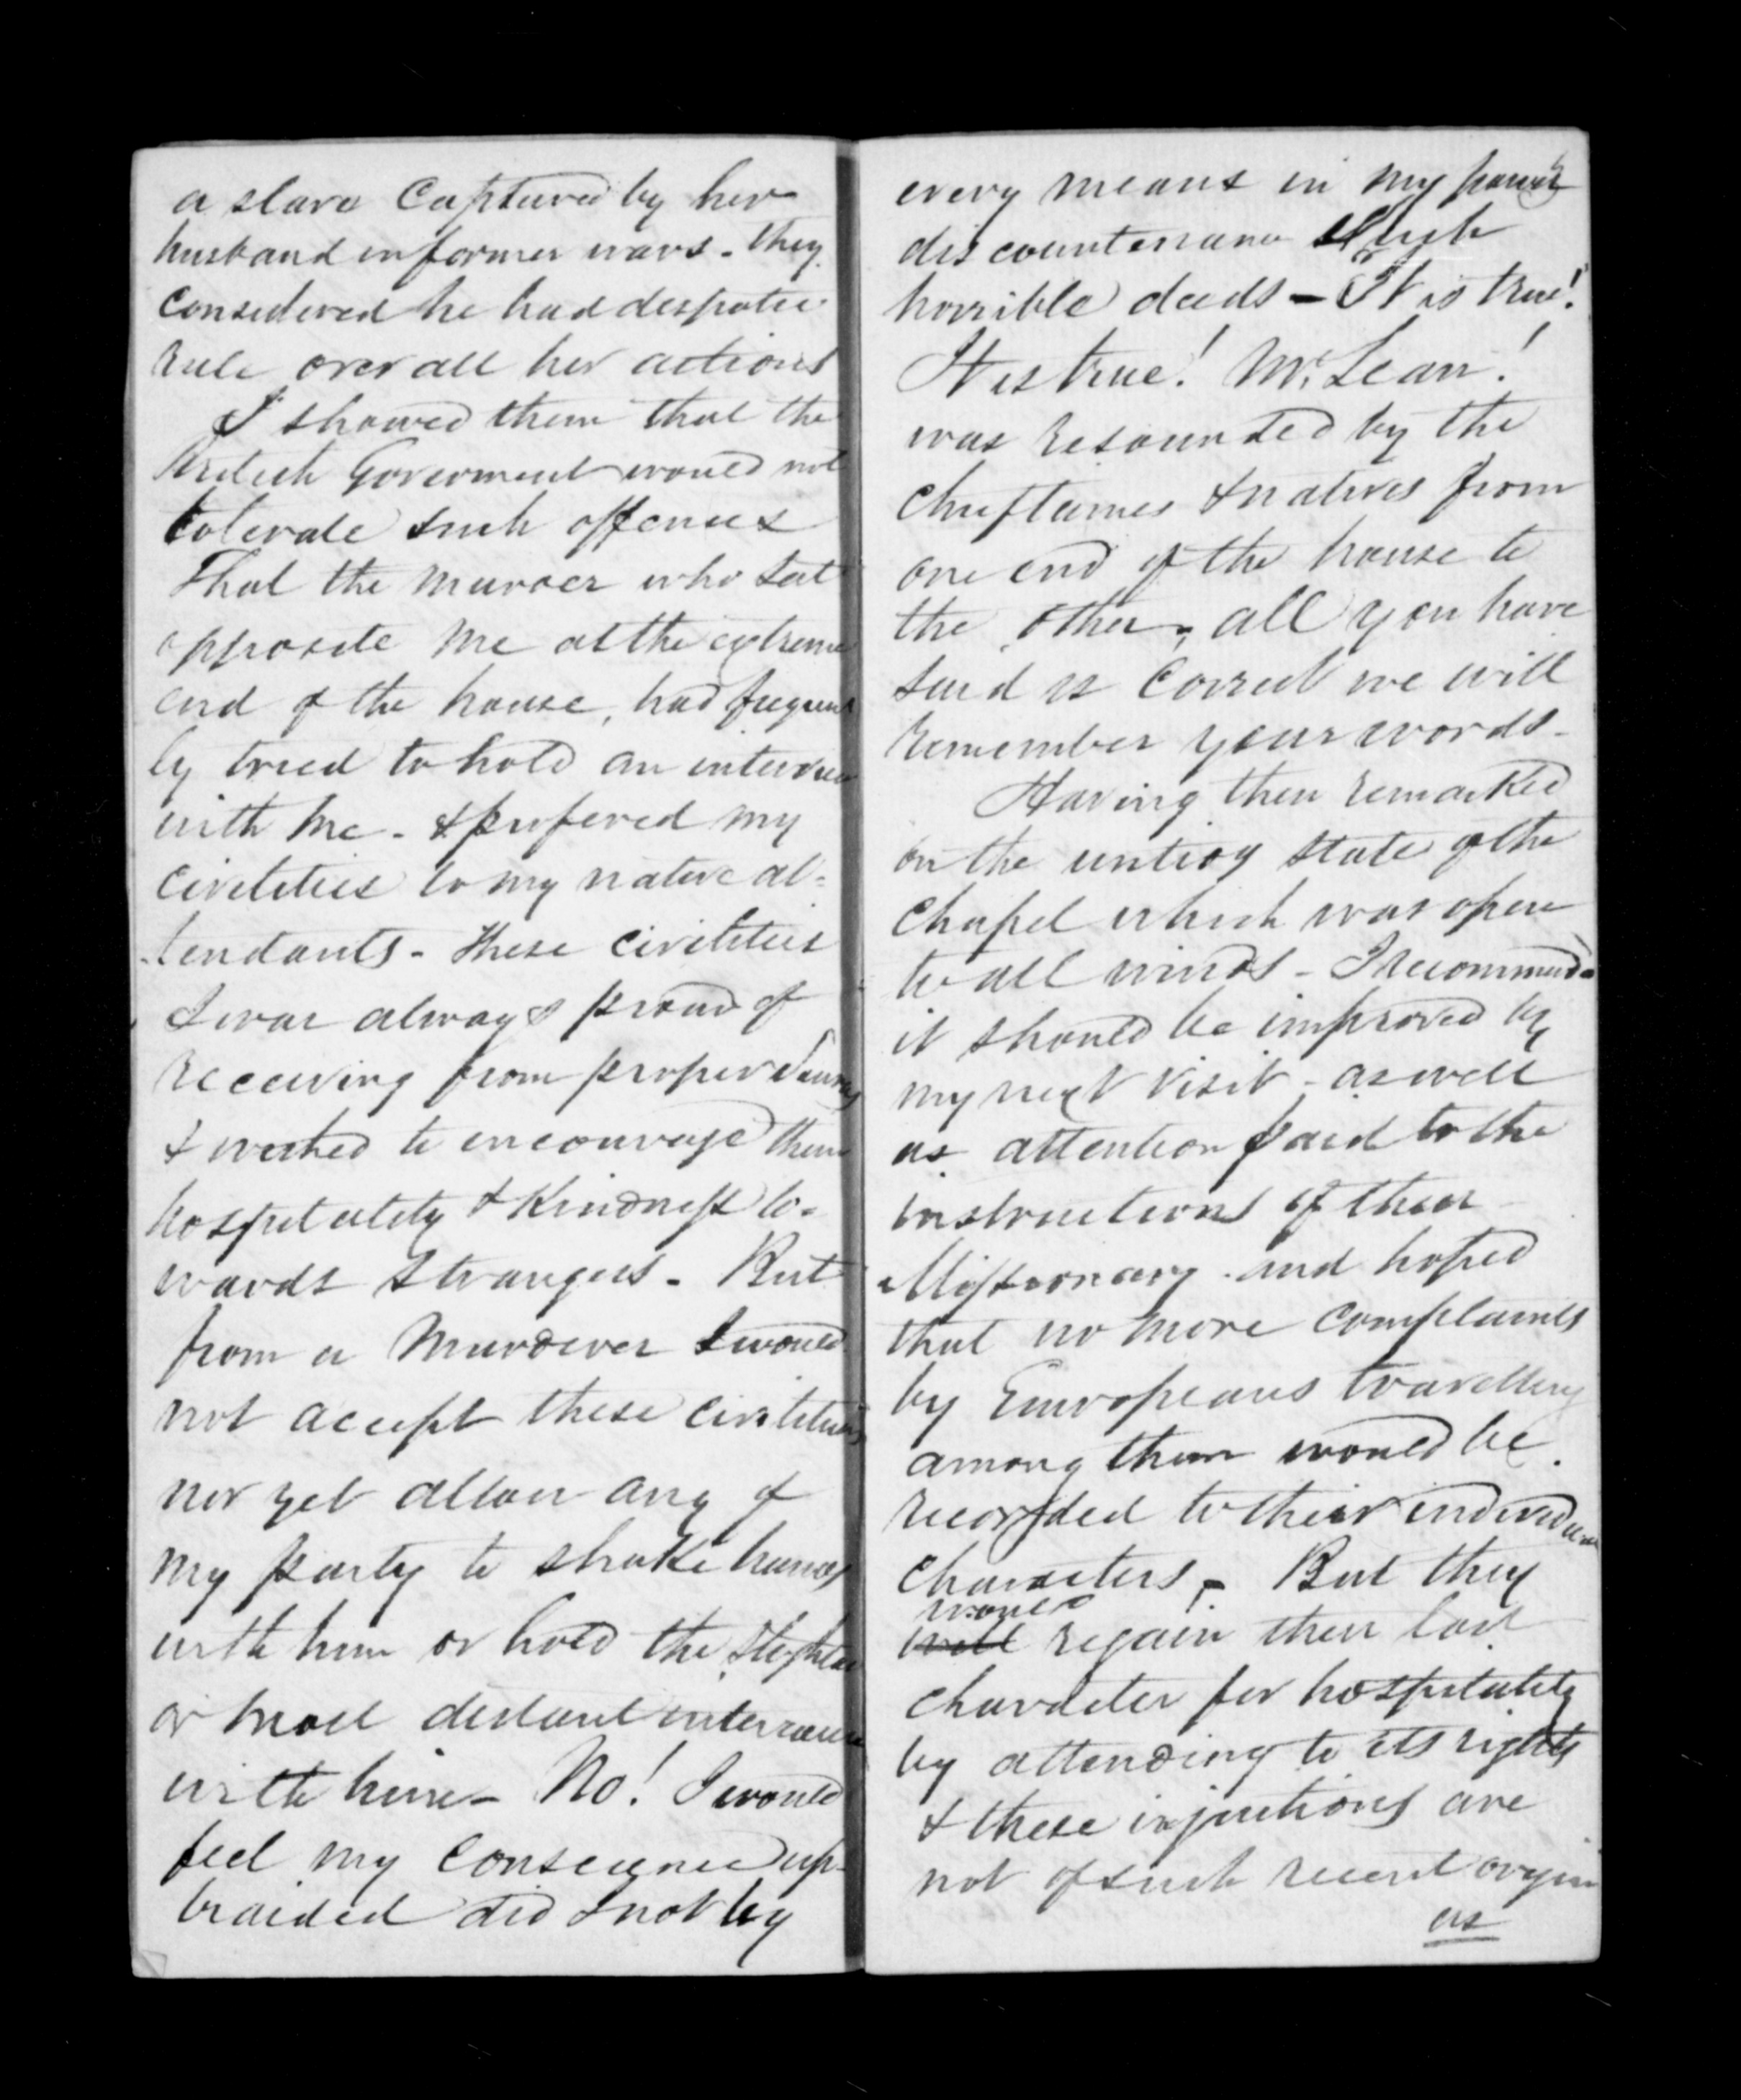 a slave Captured by her
husband in former wars - they
considered he had despotic
rule over all her actions
I showed them that the
British Goverment would not
tolerate such offences
That the murder who sat
opposite me at the extreme
end of the house, had frequent
ly tried to hold an interview
with me - & prefered my
civilities to my native at=
-tendants - These civilities
I was always proud of
receiving from proper
& wished to encourage them
hospitality & Kindness to=
wards strangers - But
from a Murderer I would
not accept these civilities
nor yet allow any of
my party to shake hands
with him or hold the slightest
or most distant intercourse
with him - No! I would
feel my conscience up-
braided did I not by
every means in my power
discountenance such
horrible deeds - It is true!
It is true! Mc Lean!
was resounded by the
chieftames & natives from
one end of the house to
the other, all you have
said is Correct we will
remember your words -
Having then remarked
on the untidy state of the
chapel which was open
to all winds - I recommend
it should be improved by
my next visit - as well
as attention paid to the
instructions of their
Missionary - and hoped
that no more complaints
by Europeans travelling
among them would be
recorded to their individual
characters - But they
would
will regain their lost
character for hospitality
by attending to its rights
& these injuctions are
not of such recent origin
as